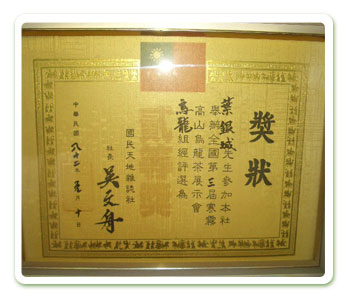 獎狀
葉銀城先生參加本社
舉辦全國第三屆寒霧
高山烏龍茶展示會
烏龍組經評選為
國民天地雜誌社
社長 吳文舟
中華民國 月 十 日